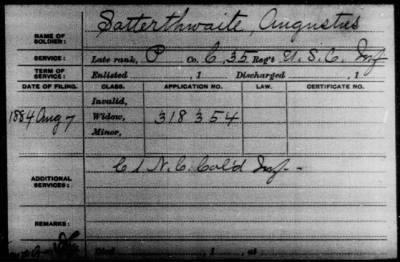 NAME OF SOLDIER: Satterthwaite, Augustus
SERVICE: Late rank, P Co. C, 35 Reg't U.S.C. Inf
TERM OF SERVICE: Enlisted , 1 Discharged , 1
DATE OF FILING. CLASS. APPLICATION NO. LAW. CERTIFICATE NO.
Invalid,
1884 Aug 7 Widow, 318354
Minor,
ADDITIONAL SERVICES: C 1 N.C. Col'd Inf -
REMARKS:
, 1 , at